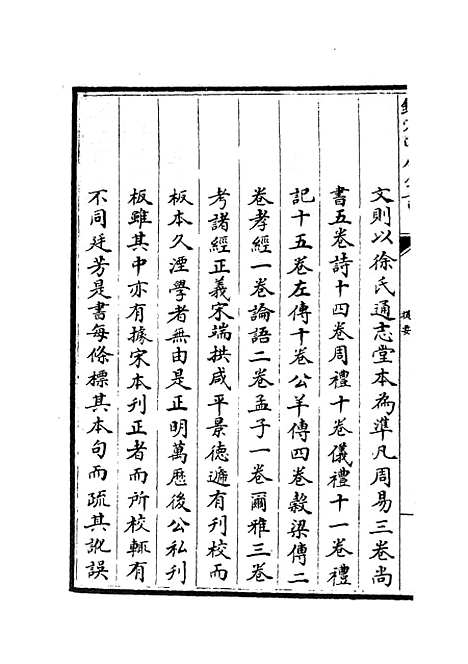 文則以徐氏通志堂本為準凡周易三卷尚
書五卷詩十四卷周禮十卷儀禮十一卷禮
記十五卷左傳十卷公羊傳四卷穀梁傳二
卷孝經一卷論語二卷孟子一卷爾雅三卷
考諸經正義宋端拱咸平景德遞有刊校而
板本久湮學者無由是正明萬厯後公私刊
板雖其中亦有據宋本刊正者而所校輒有
不同廷芳是書每條標其本句而疏其訛誤
提要